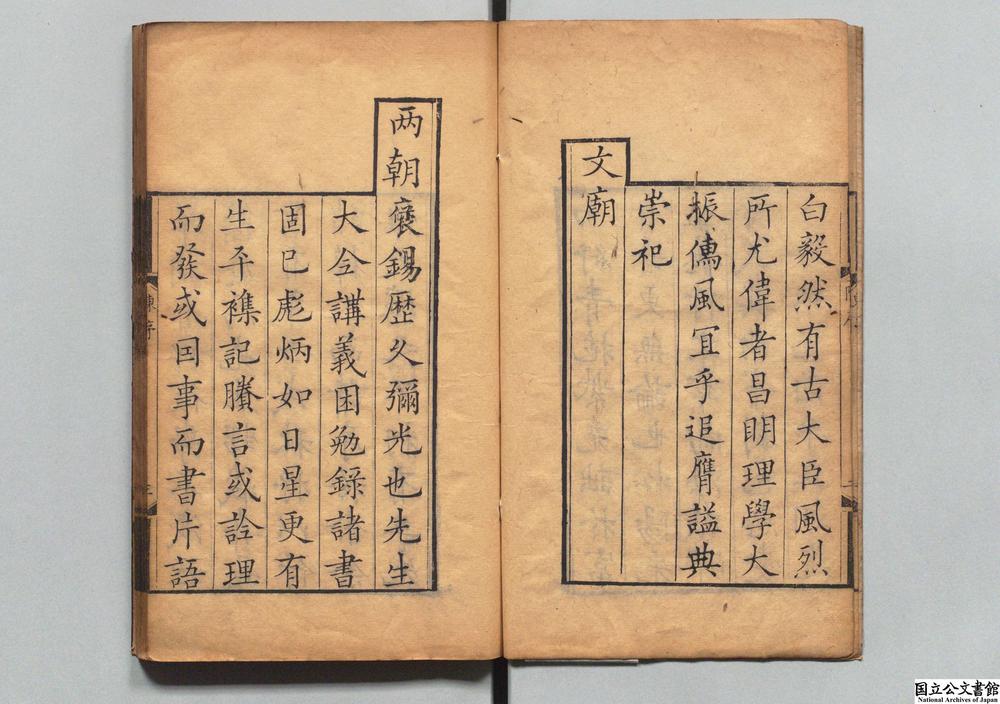 白毅然有古大臣風烈
所尤偉者昌明理學大
振儒風宜乎追膺謚典
崇祀
文廟
两朝襃錫歷久彌光也先生
大全講義困勉錄諸書
固已彪炳如日星更有
生平襍記賸言或詮理
而發或因事而書片語
陳序
国立公文書館
National Archives of Japan